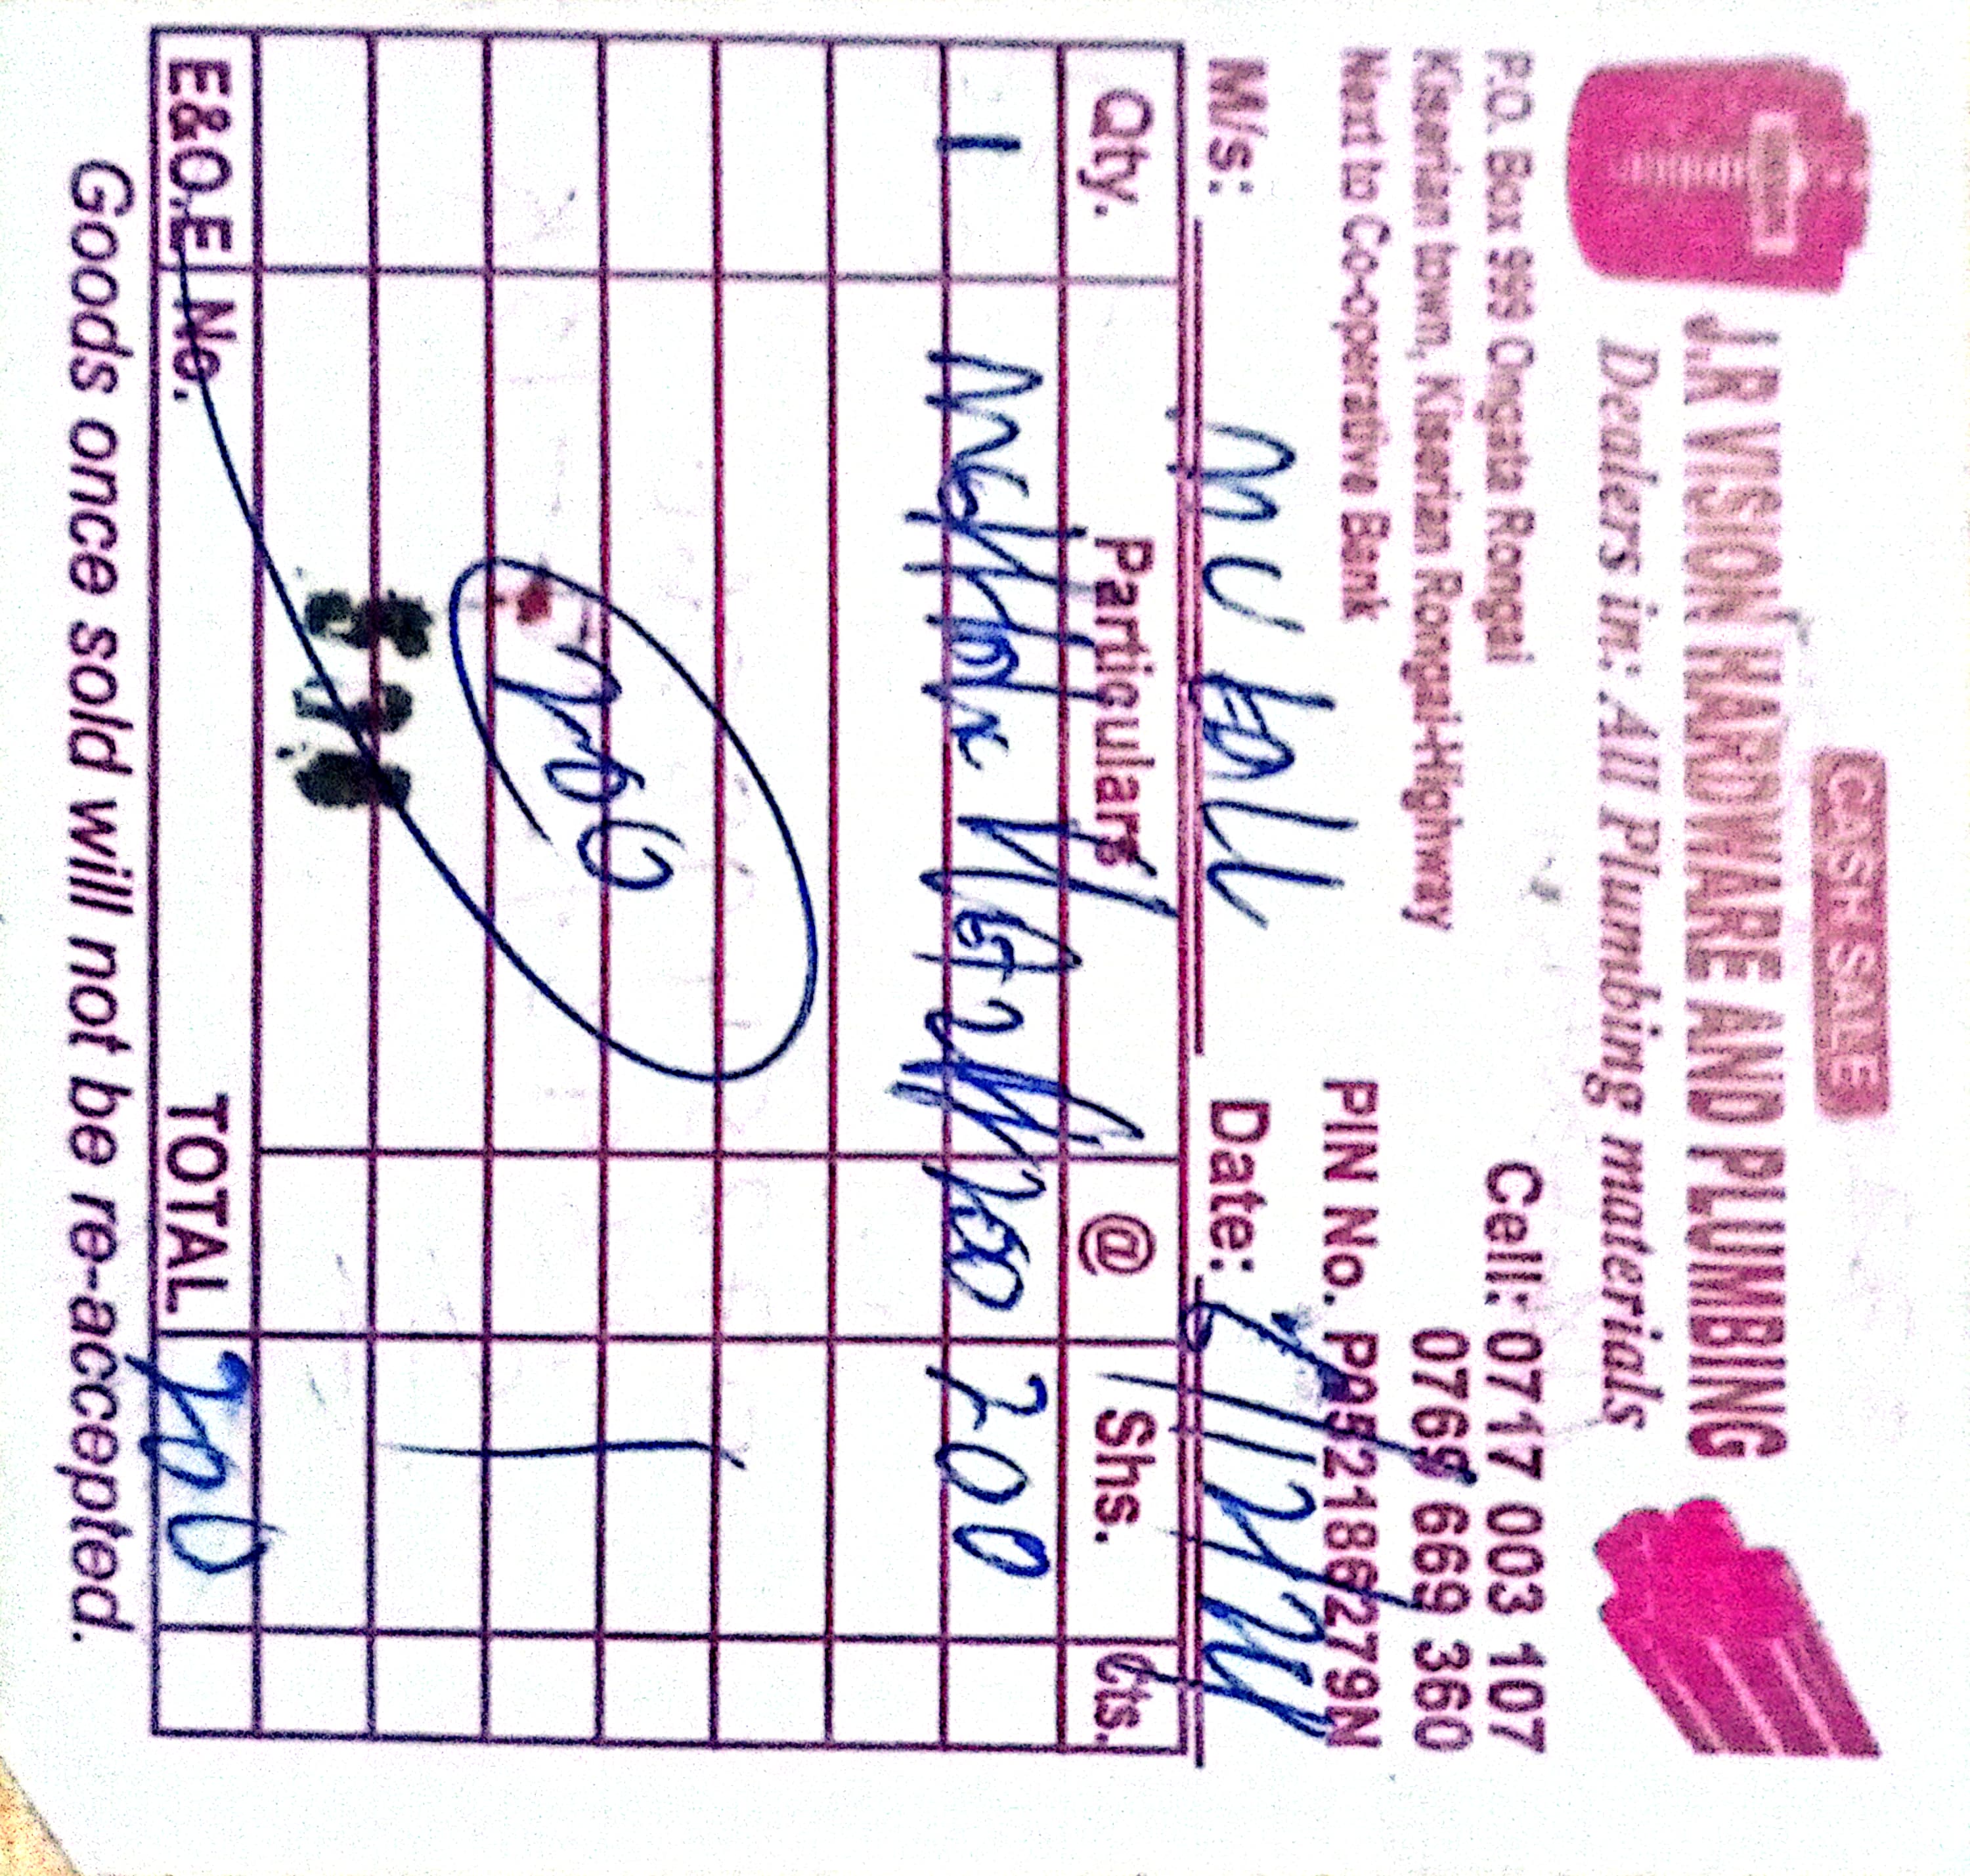 CASH SALE
J.R VISION HARDWARE AND PLUMBING
Dealers in: All Plumbing materials
P.O. Box 999 Ongata Rongai
Kiserian town, Kiserian Rongai-Highway
Next to Co-operative Bank
Cell: 0717 003 107
0769 669 360
PIN No. P052186279N
M/s:
Date:
Qty. Particulars @ Shs. Cts.
1 200
E&O.E No. TOTAL 200
Goods once sold will not be re-accepted.